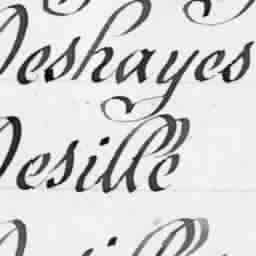 Deshayes
Desille